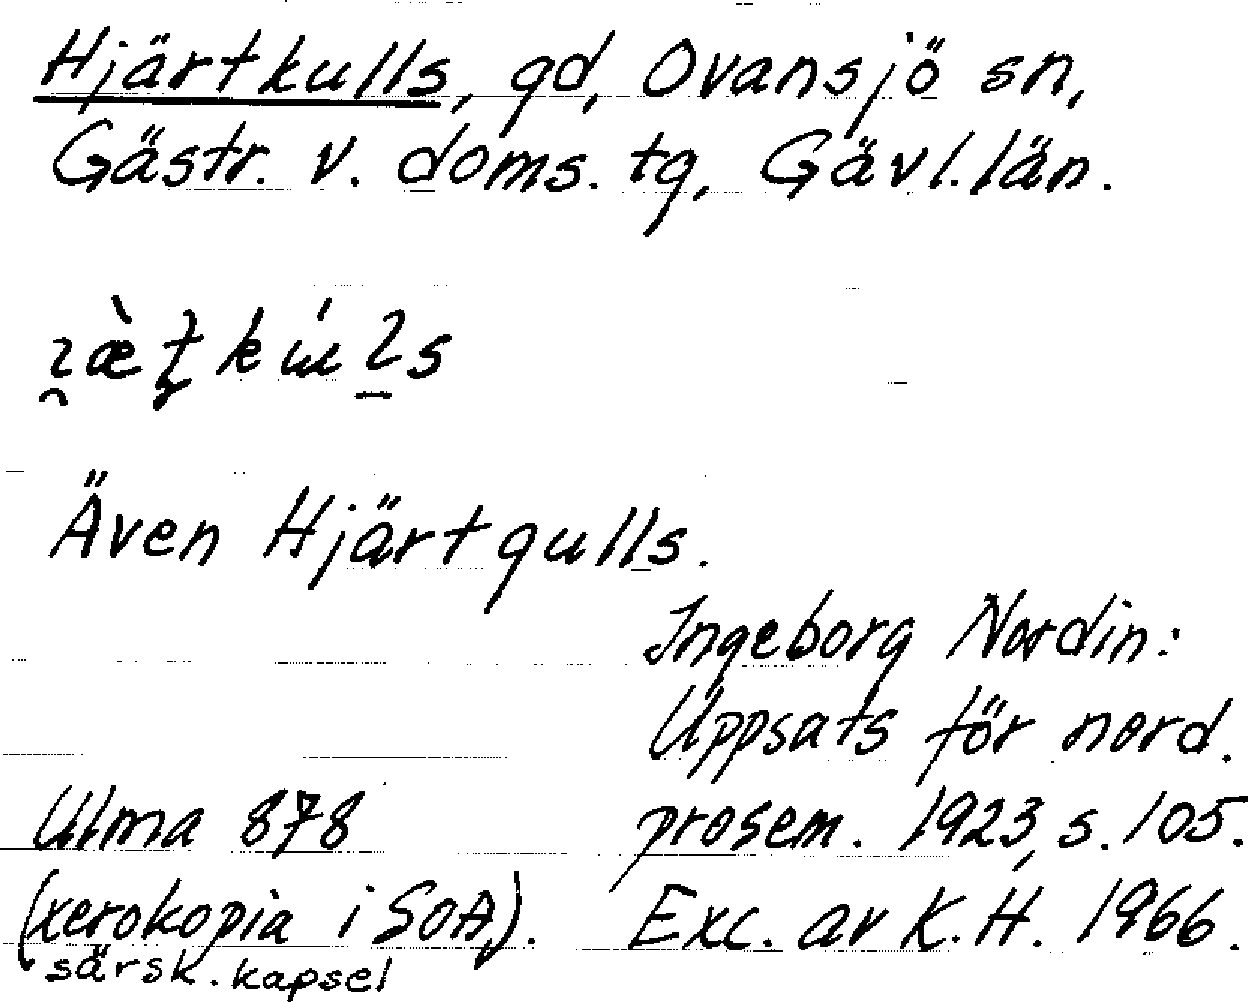 Hjärtkulls, gd, Ovansjö sn,
Gästr. v. doms. tg, Gävl. län.
Även Hjärtgulls.
Ingeborg Nordin:
Uppsats för nord.
prosem. 1923, s. 105.
Exc. av K.H. 1966.
Ulma 878
(xerokopia i SOA,).
särsk. kapsel